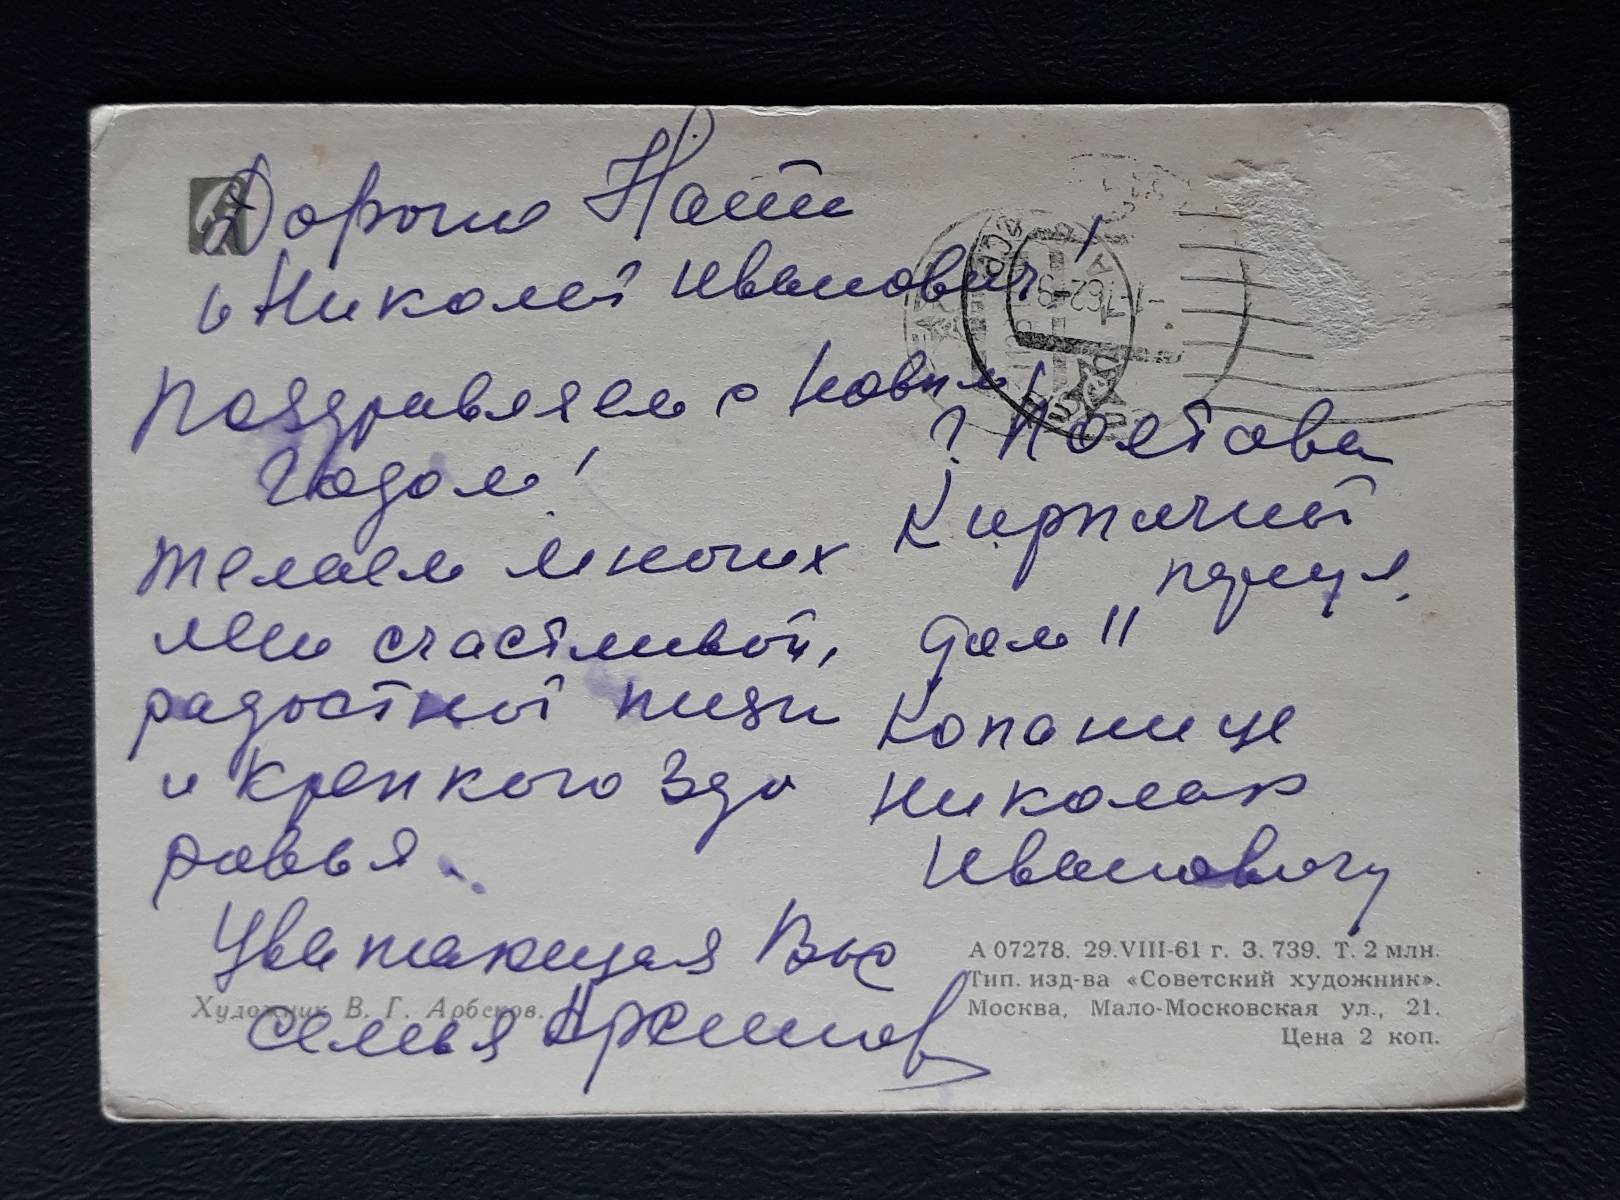 Дорогие Натт
и Николай Иванович!
Поздравляем с Новым
Годом!
Желаем многих
лет счастливой,
радостной жизни
и крепкого здо
ровья.
Уважающая Вас
семья
г. Полтава
Кирпичный
переул.
дом 11
Копанице
Николаю
Ивановичу
-1-762-19
Художник В. Г. Арбеков.
А 07278. 29.VIII-61 г. З. 739. Т. 2 млн.
Тип. изд-ва «Советский художник».
Москва, Мало-Московская ул., 21.
Цена 2 коп.